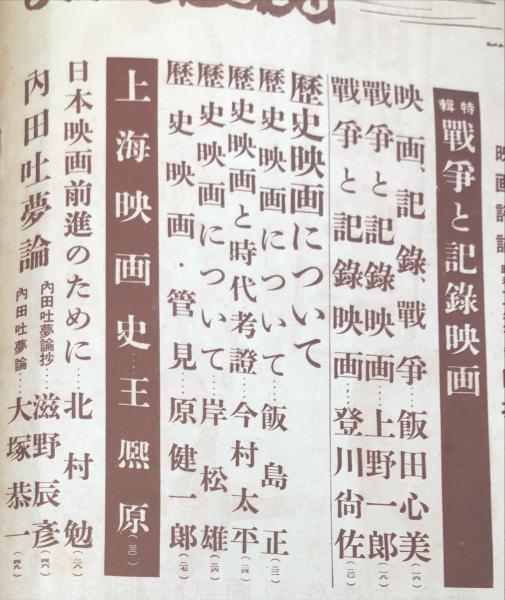 特輯 戰爭と記錄映画
映画、記錄、戰爭‥飯田心美(一六)
戰爭と記錄映画‥上野一郎(一八)
戰爭と記錄映画‥登川尙佐(二〇)
歷史映画について
歷史映画について‥飯島正(二二)
歷史映画と時代考證‥今村太平(二四)
歷史映画について‥岸松雄(二六)
歷史映画・管見‥原健一郎(二七)
上海映画史‥‥王熈原(三〇)
日本映画前進のために‥‥北村勉(二八)
內田吐夢論
內田吐夢論抄‥滋野辰彥(四六)
內田吐夢論‥‥大塚恭一(四九)